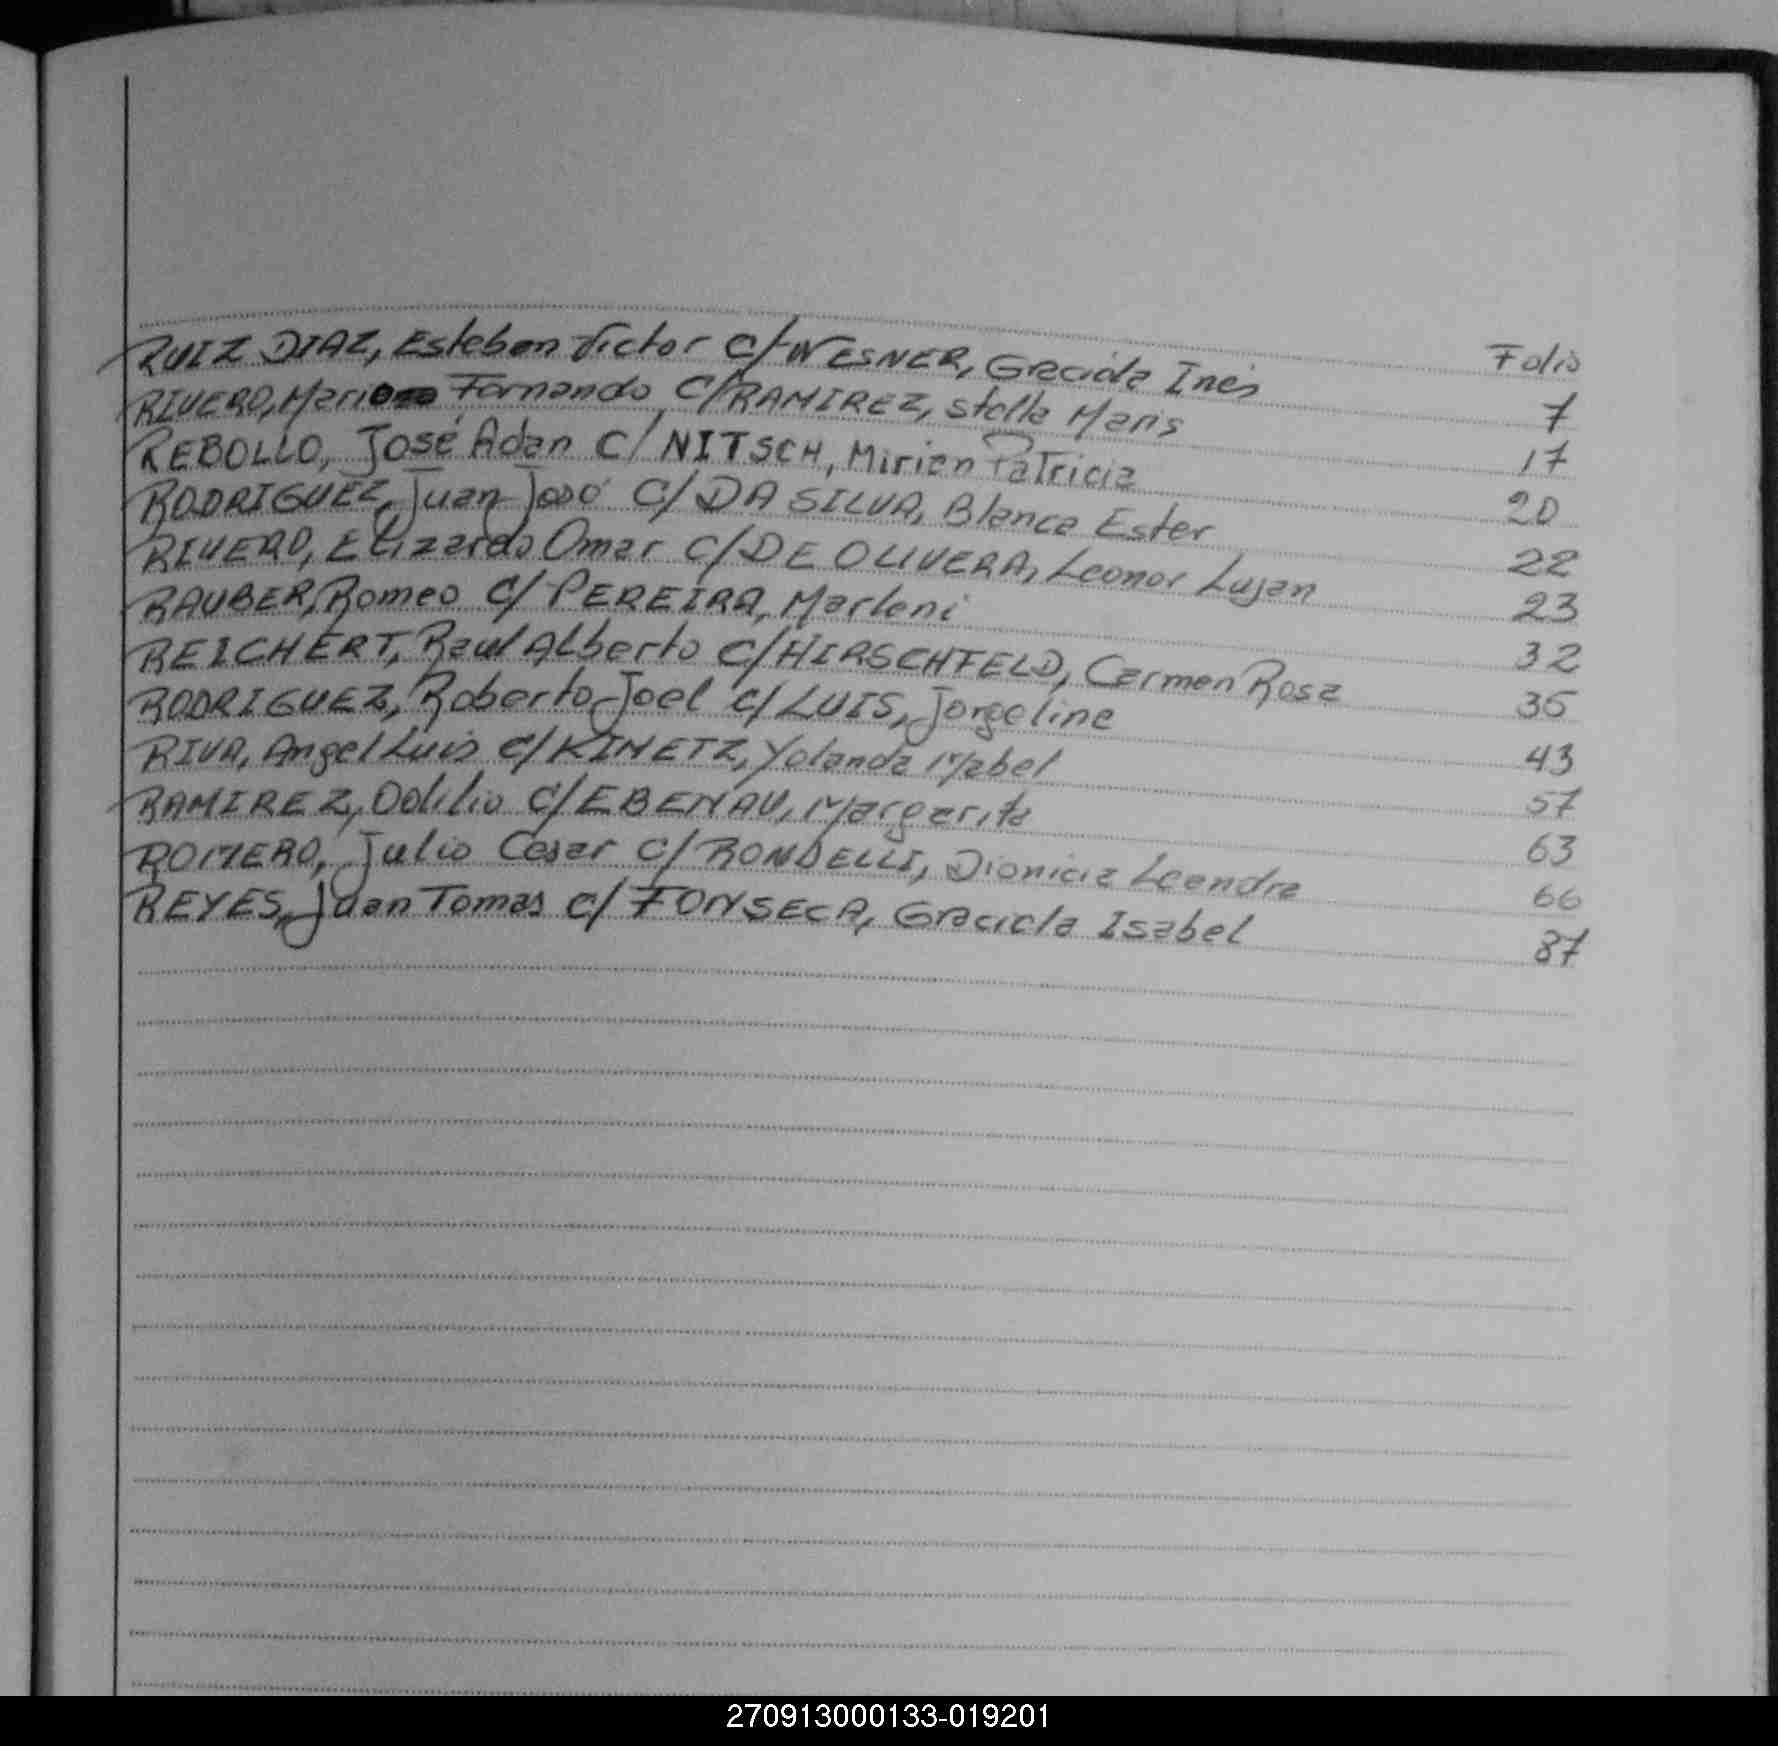 Folio
RUIZ DIAZ, Esteban Victor C/ WESNER, Graciela Inés 7
RIVERO, Mario Fernando C/ RAMIREZ, Stella Maris 17
REBOLLO, José Adan C/ NITSCH, Mirian Patricia 20
RODRIGUEZ, Juan José C/ DA SILVA, Blanca Ester 22
RIVERO, Elizardo Omar C/ DE OLIVERA, Leonor Lujan 23
RAUBER, Romeo C/ PEREIRA, Marleni 32
REICHERT, Raul Alberto C/ HIRSCHFELD, Carmen Rosa 35
RODRIGUEZ, Roberto Joel C/ LUIS, Jorgelina 43
RIVA, Angel Luis C/ KIMETZ, Yolanda Mabel 57
RAMIREZ, Odilio C/ EBENAU, Margarita 63
ROMERO, Julio Cesar C/ RONDELLI, Dionicia Leandra 66
REYES, Juan Tomas C/ FONSECA, Graciela Isabel 87
270913000133-019201